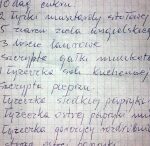 10 dag cukru
2 łyżki musztardy stołowej
5 ziaren ziela angielskiego
3 liście laurowe
szczypta gałki muszkato
1 łyżeczka soli kuchennej
szczypta pieprzu
1 łyżeczka słodkiej papryki
1 łyżeczka ostrej papryki
1 łyżeczka